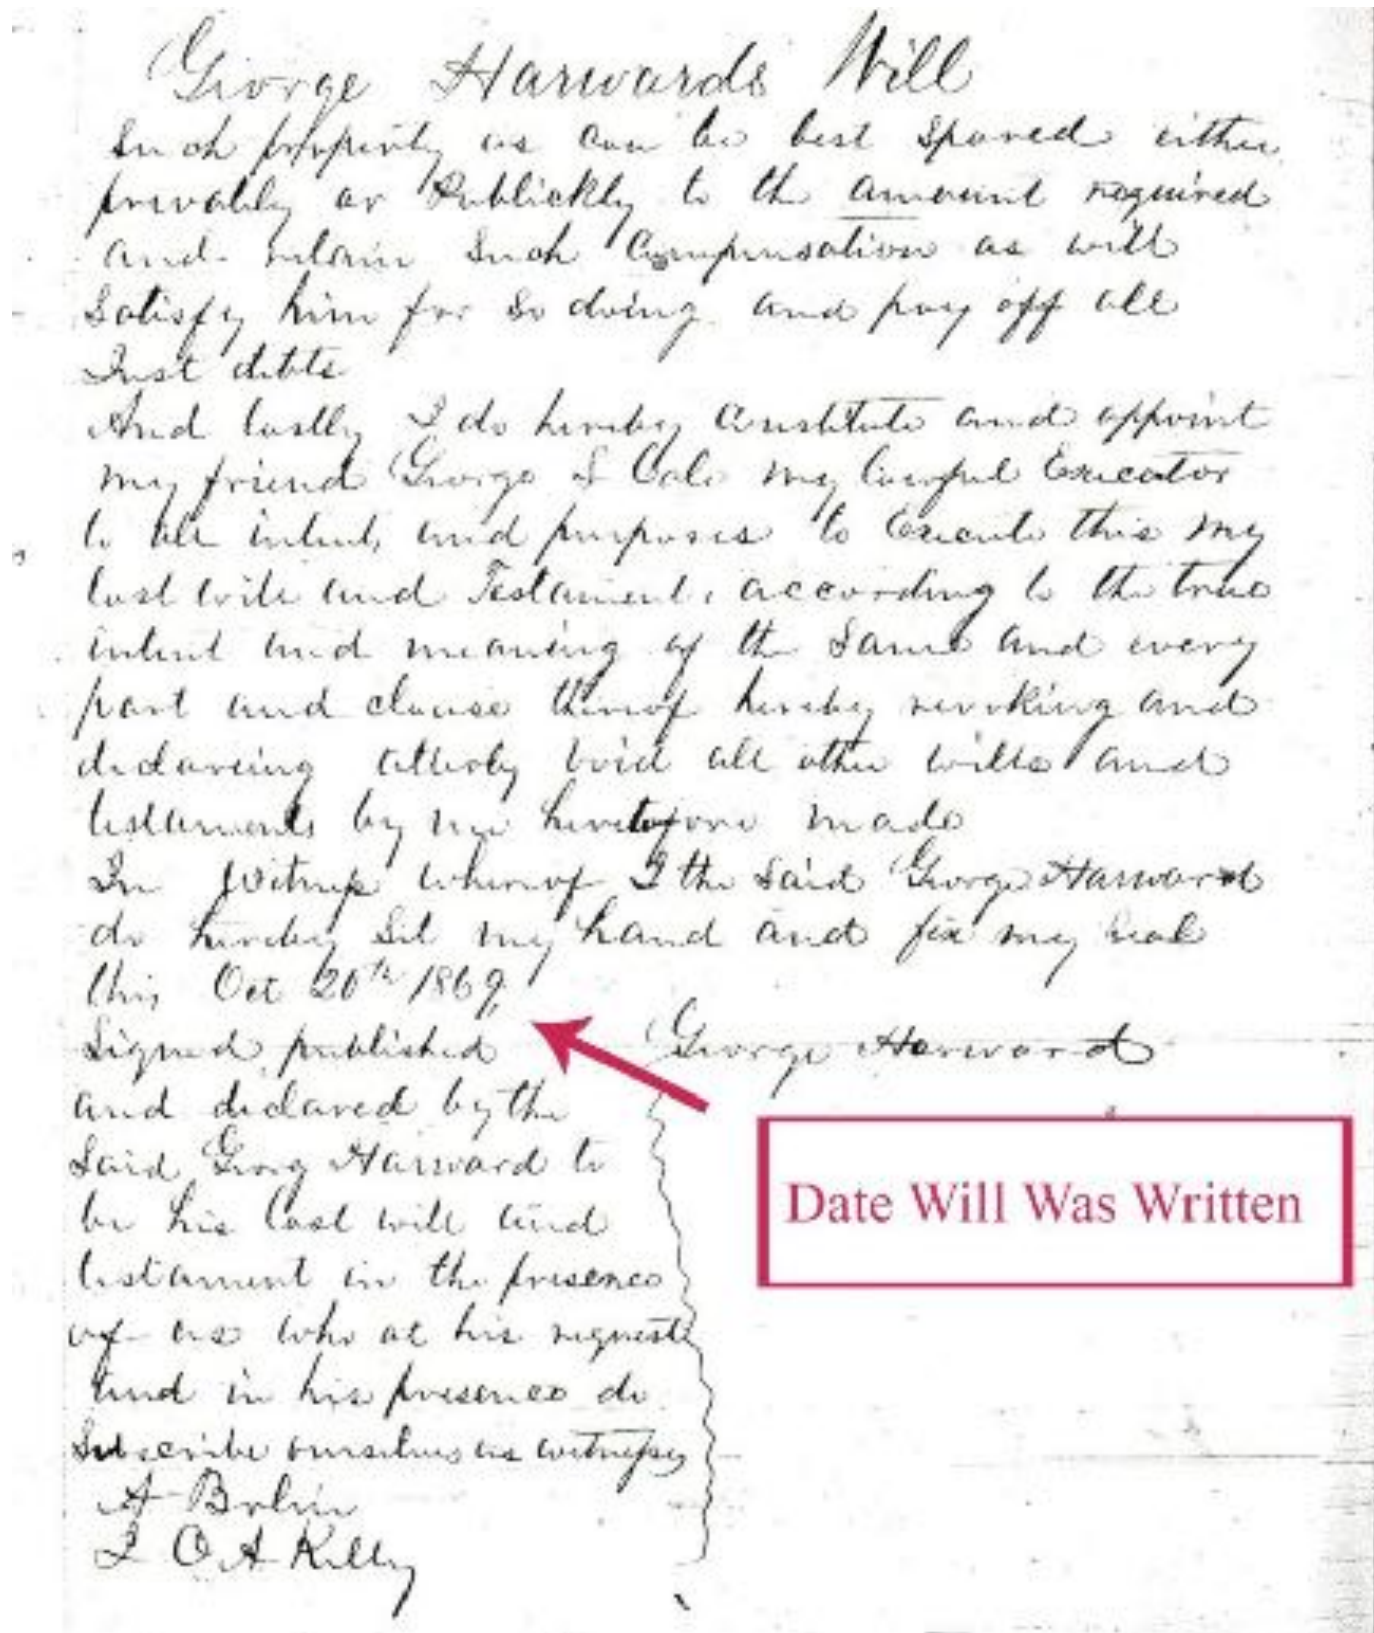 George Harwards Will
Such property as can be best spared either
privately or Publickly to the amount required
and retain Such Compensation as will
Satisfy him for So doing and pay off all
Just debts
And lastly I do hereby Constitute and appoint
my friend George my lawful Executor
to all intents and purposes to Execute this my
last will and Testament, according to the true
intent and meaning of the Same and every
part and clause thereof hereby revoking and
declareing utterly void all other wills and
testaments by me heretofore made
In Witness whereof I the Said George Harward
do hereby Set my hand and fix my seal
this Oct 20th 1869
Signed published George Harward
and declared by the
Said Georg Harward to
be his last will and
testament in the presence
of us who at his request
and in his presence do
Subscribe ourselves as witnesses
A Bolin
O A Kelly
Date Will Was Written